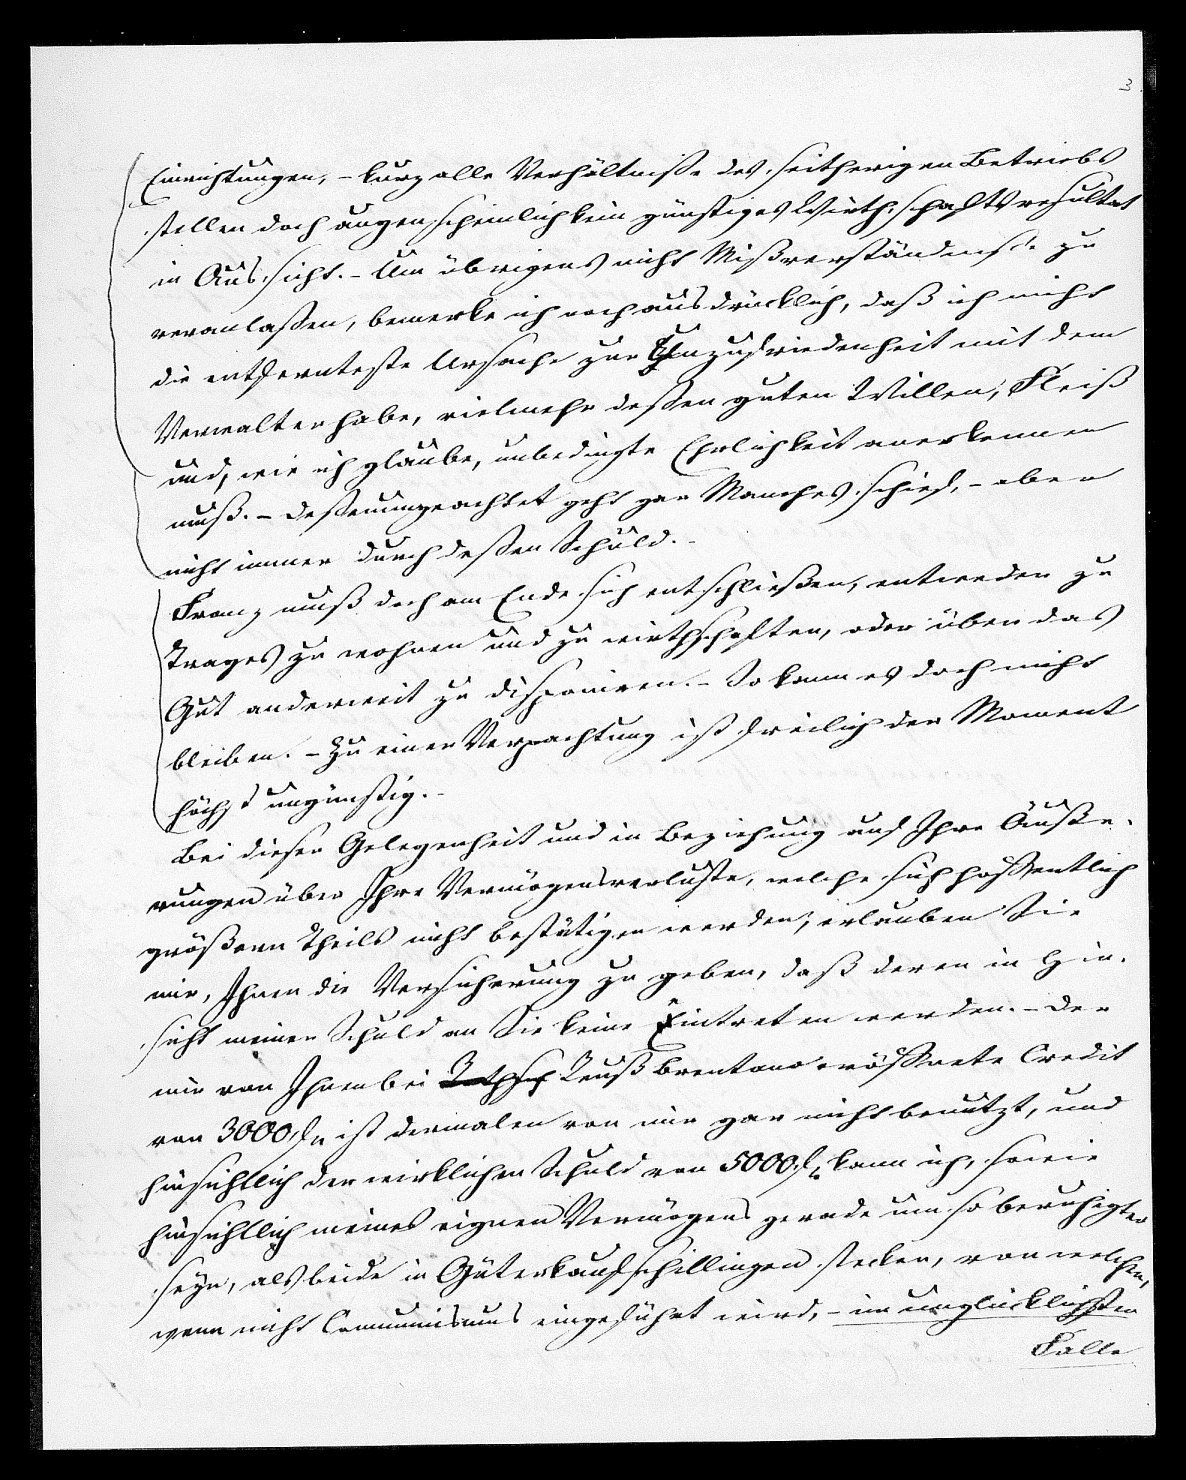 3.
Einrichtungen, – kurz alle Verhältniße des seitherigen Betriebs
stellen doch augenscheinlich kein günstiges Wirthschaftsresultat
in Aussicht. – Um übrigens nicht Mißverständniße zu
veranlaßen, bemerke ich noch ausdrücklich, daß ich nicht
die entfernteste Ursache zur Unzufriedenheit mit dem
Verwalter habe, vielmehr deßen guten Willen, Fleiß
und, wie ich glaube, unbedingte Ehrlichkeit anerkennen
muß. – Deßenungeachtet geht gar Manches schief, – aber
nicht immer durch deßen Schuld. –
Franz muß doch am Ende sich entschließen, entweder zu
Trages zu wohnen und zu wirthschaften, oder über das
Gut anderweit zu disponiren. – So kann es doch nicht
bleiben. – Zu einer Verpachtung ist freilich der Moment
höchst ungünstig. –
Bei dieser Gelegenheit und in Beziehung auf Ihre Äuße-
rungen über Ihre Vermögensverluste, welche sich hoffentlich
größern Theils nicht bestätigen werden, erlauben Sie
mir, Ihnen die Versicherung zu geben, daß deren in Hin-
sicht meiner Schuld an Sie keine Eintreten werden. – Der
mir von Ihnen bei Reuß Brentano eröffnete Credit
von 3000 f. ist dermalen von mir gar nicht benutzt, und
hinsichtlich der wirklichen Schuld von 5000 f. kann ich, sowie
hinsichtlich meines eignen Vermögens gerade um so beruhigter
seyn, als beide in Güterkaufschillingen stecken, von welchen,
wenn nicht Communismus eingeführt wird, – im unglücklichsten
Falle